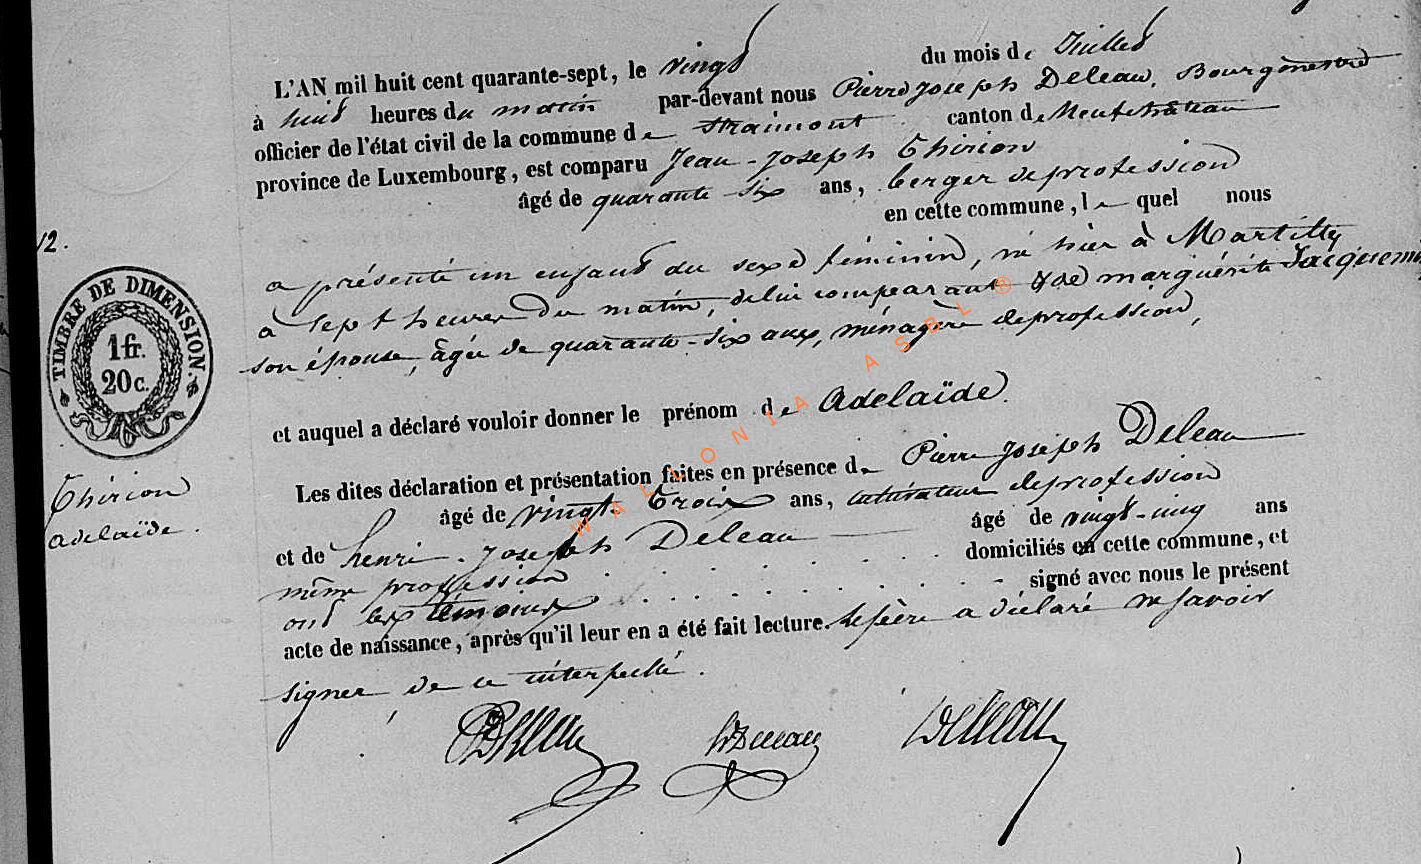 L'AN mil huit cent quarante-sept, le vingt du mois de Juillet
à huit heures du matin par-devant nous Pierre Joseph Deleau, Bourgmestre
officier de l'état civil de la commune de Straimont canton de Neufchâteau
province de Luxembourg, est comparu Jean-Joseph Thirion
âgé de quarante-six ans, berger de profession
en cette commune, le quel nous
12.
a présenté un enfant du sexe féminin, né hier à Martilly
à sept heures du matin, de lui comparant & de marguérite Jacquemin
son épouse, âgée de quarante-six ans, ménagère de profession,
TIMBRE DE DIMENSION.
1 fr.
20 c.
et auquel a déclaré vouloir donner le prénom de Adelaïde.
Les dites déclaration et présentation faites en présence de Pierre Joseph Deleau
âgé de vingt-trois ans, cultivateur de profession
et de henri-Joseph Deleau âgé de vingt-cinq ans
même profession domiciliés en cette commune, et
ont les témoins signé avec nous le présent
acte de naissance, après qu'il leur en a été fait lecture. le père a déclaré ne savoir
signer de ce interpellé.
Thirion
adelaïde.
Deleau
WALLONIA ASBL ®